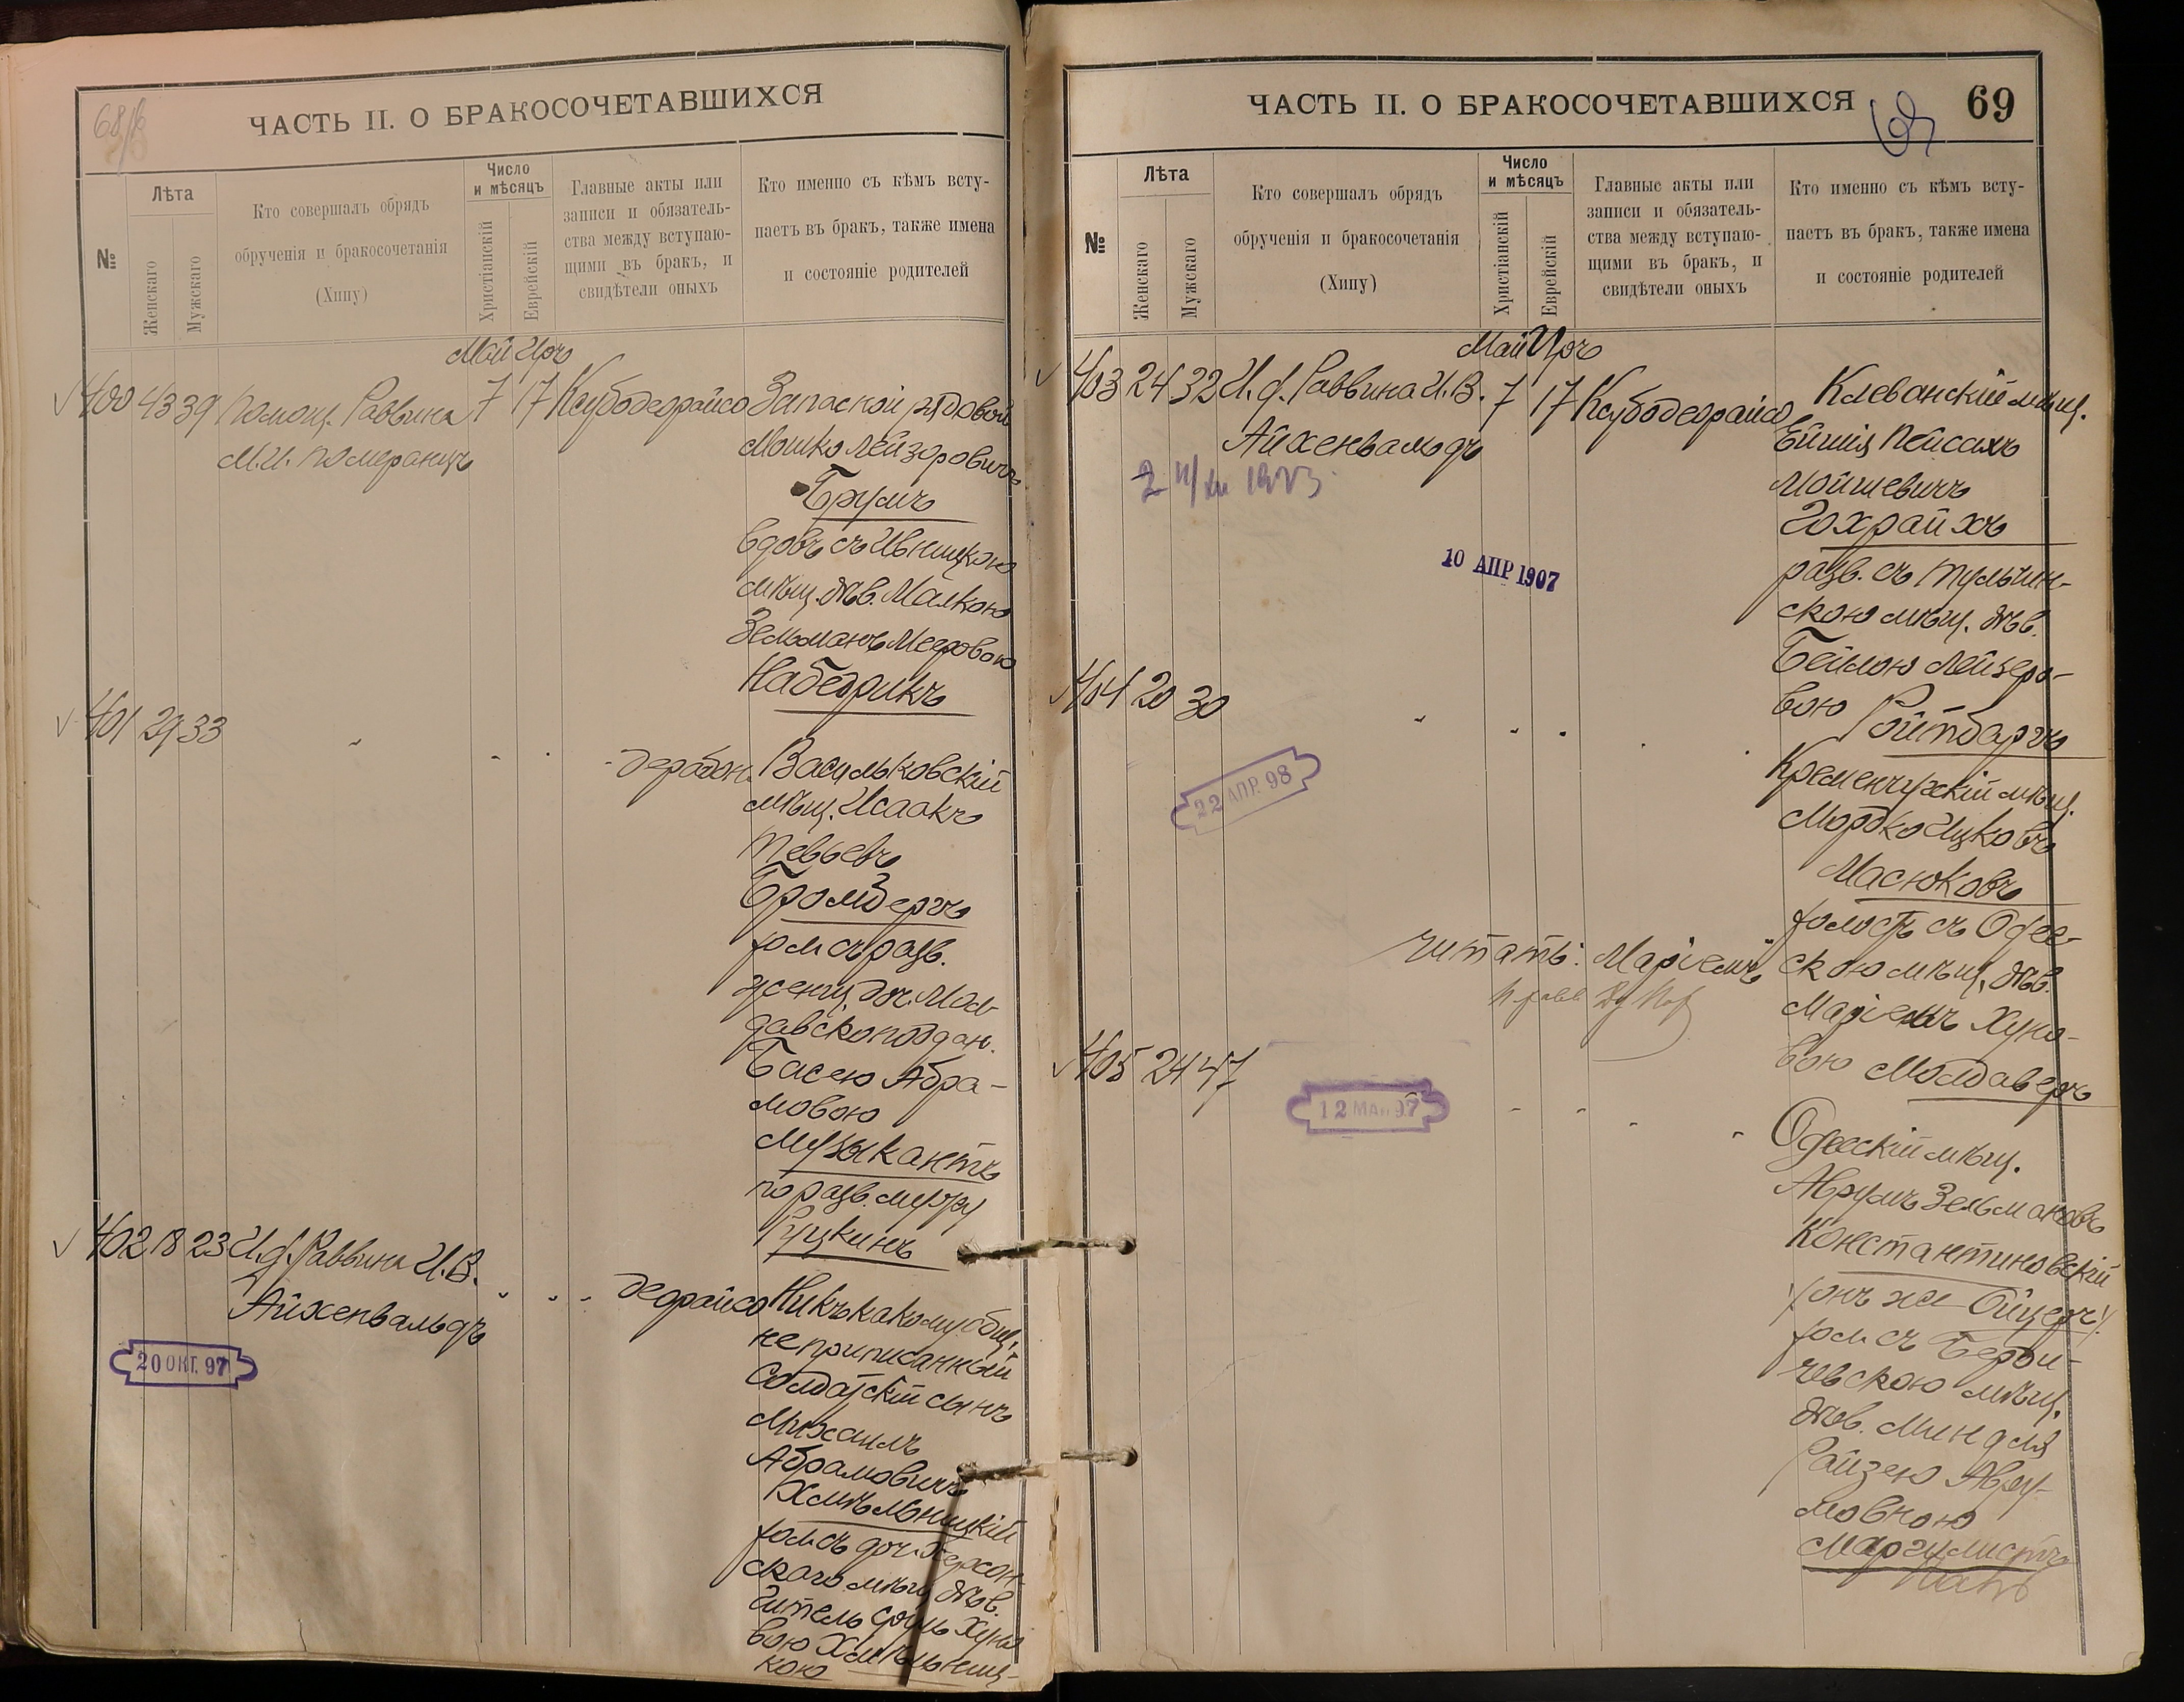 ЧАСТЬ II. О БРАКОСОЧЕТАВШИХСЯ
№
Лѣта
Женскаго
Мужскаго
Кто совершалъ обрядъ
обрученія и бракосочетанія
(Хипу)
Число
и мѣсяцъ
Христіанскій
Еврейскій
Главные акты или
записи и обязатель-
ства между вступаю-
щими въ бракъ, и
свидѣтели оныхъ
Кто именно съ кѣмъ всту-
паетъ въ бракъ, также имена
и состояніе родителей
Май Іръ
400 43 39 Помощ. Раввина 7 17 Ксубодедрайсо Запасной рядовой
М.И. Померанцъ
Мошко Лейзоровичъ
Брумъ
вдовъ съ Ивницкою
мѣщ. дѣв. Малкою
Зельманъ Мееровою
Набедрикъ
401 29 33
дерабон. Васильковскій
мѣщ. Исаакъ
Тевьевъ
Бромбергъ
хол. съ разв.
женщ. доч. Мол-
давскоподдан.
Басею Абра-
мовою
Музыкантъ
по разв. мужу
Гуцкинъ
402 18 23 И.д. Раввина И.В.
Айхенвальдъ
20 ОКТ. 97
дедрайсо Ник какому общ.
не приписанный
Солдатскій сынъ
Михаилъ
Абрамовичъ
Хмѣльницкій
хол. съ доч. Херсон-
скаго мѣщ. дѣв.
Хуно-
вою Хмѣльниц-
кою
ЧАСТЬ II. О БРАКОСОЧЕТАВШИХСЯ
69
№
Лѣта
Женскаго
Мужскаго
Кто совершалъ обрядъ
обрученія и бракосочетанія
(Хипу)
Число
и мѣсяцъ
Христіанскій
Еврейскій
Главные акты или
записи и обязатель-
ства между вступаю-
щими въ бракъ, и
свидѣтели оныхъ
Кто именно съ кѣмъ всту-
паетъ въ бракъ, также имена
и состояніе родителей
Май Іръ
403 24 32 И.д. Раввина И.В. 7 17 Ксубодедрайсо Клеванскій мѣщ.
Айхенвальдъ
Пейсахъ
Мойшевичъ
Гохрайхъ
10 АПР 1907
разв. съ Тульчин-
скою мѣщ. дѣв.
Бейлою Лейзеро-
вою Ройтбаргъ
404 20 30
22 АПР. 98
Кременчугскій мѣщ.
Мордко Ицковъ
Масюковъ
холост съ Одес-
скою мѣщ. дѣв.
Маріемъ Хуно-
вою Молдаверъ
читать: Маріемъ
405 24 47
12 МАЯ 97
Одесскій мѣщ.
Аврумъ Зельмановъ
Константиновскій
(онъ же Ойцеръ)
хол. съ Берди-
чевскою мѣщ.
дѣв. Миндля
Райзею Авру-
мовною
Маргулисъ